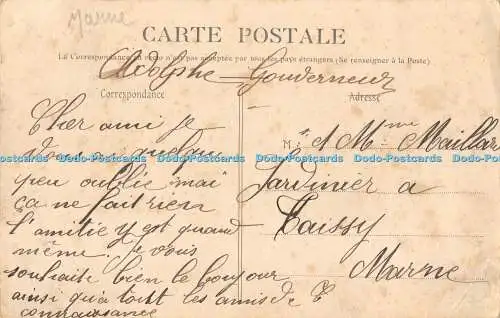 Marne
CARTE POSTALE
La Correspondance au recto n'est pas acceptée par tous les pays étrangers (Se renseigner à la Poste)
Adolphe Gouverneur
Correspondance
Adresse
Cher ami je
vous ai quelque
peu oublié mai
ça ne fait rien
l'amitie y est quand
même. Je vous
souhaite bien le bonjour
ainsi qu'a tout les amis de
connaissance
M. r et Mme Maillar
Jardinier a
Taissy
Marne
Dodo-Postcards Dodo-Postcards Dodo-Postcards Dodo-Postcards